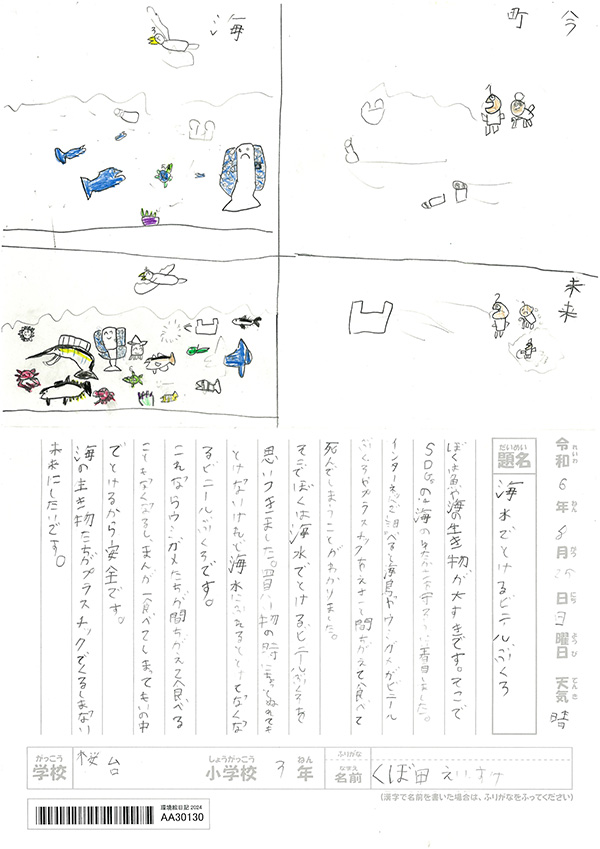 今
町
海
未来
令和6年8月 日日曜日 天気 晴
れいわ ねん がつ にち ようび てんき
だいめい
題名 海水でとけるビニールぶくろ
ぼくは魚や海の生き物が大すきです。そこで
SDGsの海のゆたかさを守ろうに着目しました。
インターネットで調べると海鳥やウミガメがビニール
ぶくろやプラスチックをえさと間ちがえて食べて
死んでしまうことがわかりました。
そこでぼくは海水でとけるビニールぶくろを
思いつきました。買い物の時に ぬれても
とけないけれど海水に入るととけてなくな
るビニールぶくろです。
これならウミガメたちが間ちがえて食べる
こともなくなるし、まんが一食べてしまってもいの中
でとけるから安全です。
海の生き物たちがプラスチックでくるしまない
未来にしたいです。
がっこう しょうがっこう ねん
学校 桜台 小学校 3年
ふりがな
なまえ
名前 くぼ田 えいすけ
(漢字で名前を書いた場合は、ふりがなをふってください)
環境絵日記 2024
AA30130